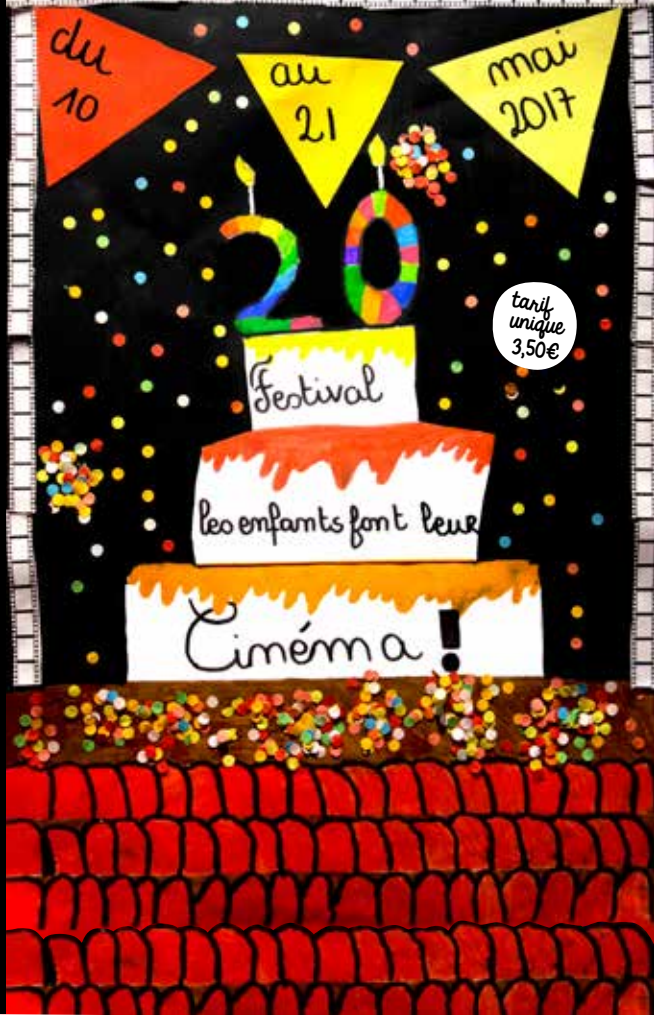 du
10
au
21
mai
2017
20
tarif
unique
3,50€
Festival
les enfants font leur
Cinéma !